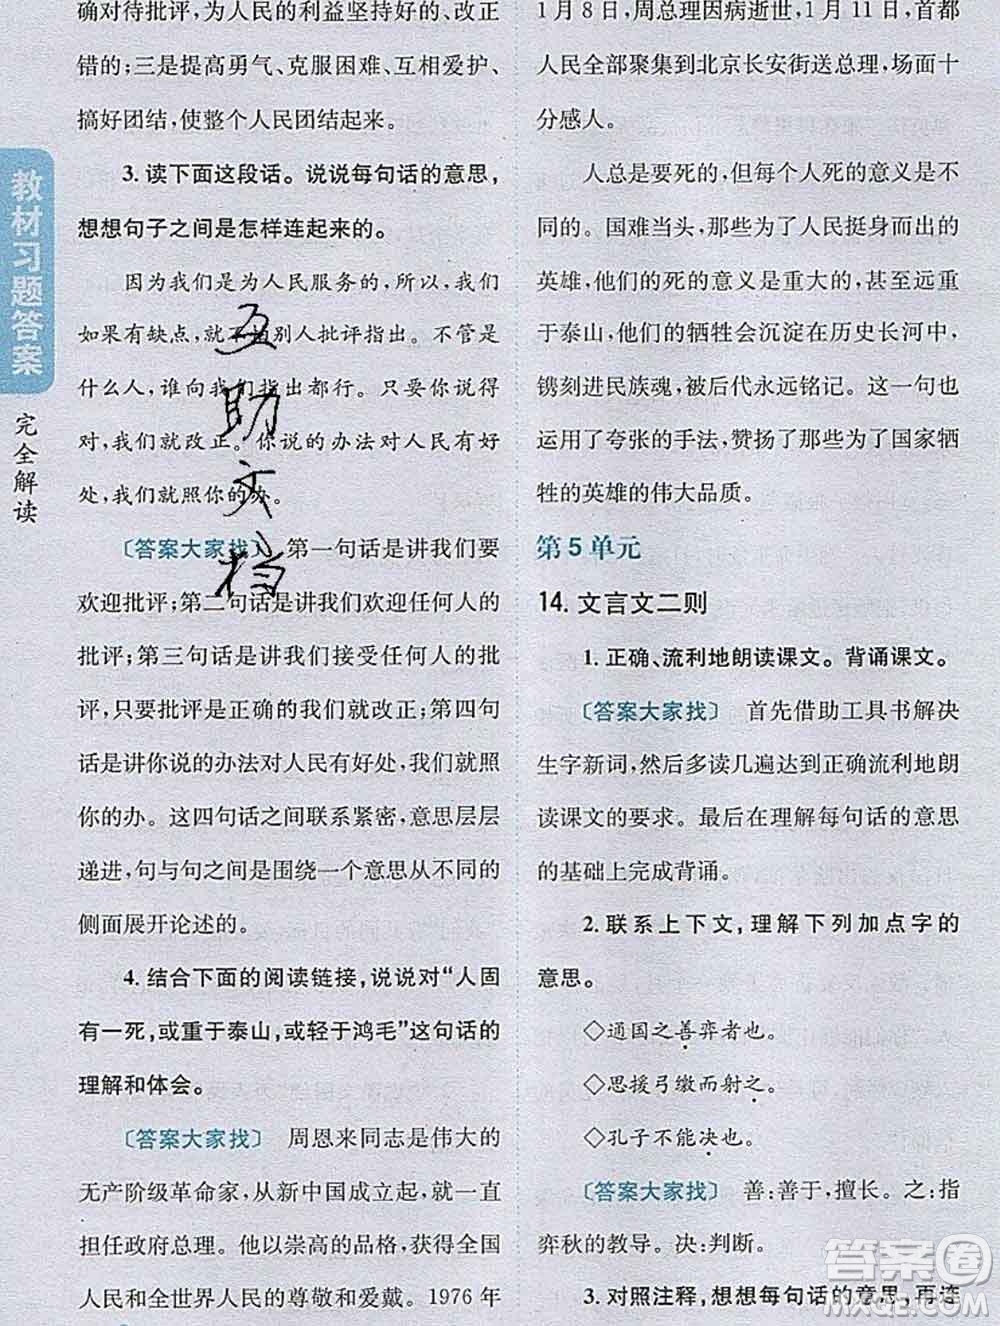 教材习题答案
完全解读
确对待批评,为人民的利益坚持好的、改正
错的;三是提高勇气、克服困难、互相爱护、
搞好团结,使整个人民团结起来。
3. 读下面这段话。说说每句话的意思,
想想句子之间是怎样连起来的。
因为我们是为人民服务的,所以,我们
如果有缺点,就不怕别人批评指出。不管是
什么人,谁向我们指出都行。只要你说得
对,我们就改正。你说的办法对人民有好
处,我们就照你的办。
〔答案大家找〕 第一句话是讲我们要
欢迎批评;第二句话是讲我们欢迎任何人的
批评;第三句话是讲我们接受任何人的批
评,只要批评是正确的我们就改正;第四句
话是讲你说的办法对人民有好处,我们就照
你的办。这四句话之间联系紧密,意思层层
递进,句与句之间是围绕一个意思从不同的
侧面展开论述的。
4. 结合下面的阅读链接,说说对“人固
有一死,或重于泰山,或轻于鸿毛”这句话的
理解和体会。
〔答案大家找〕 周恩来同志是伟大的
无产阶级革命家,从新中国成立起,就一直
担任政府总理。他以崇高的品格,获得全国
人民和全世界人民的尊敬和爱戴。1976 年
1月8日,周总理因病逝世,1月11日,首都
人民全部聚集到北京长安街送总理,场面十
分感人。
人总是要死的,但每个人死的意义是不
同的。国难当头,那些为了人民挺身而出的
英雄,他们的死的意义是重大的,甚至远重
于泰山,他们的牺牲会沉淀在历史长河中,
镌刻进民族魂,被后代永远铭记。这一句也
运用了夸张的手法,赞扬了那些为了国家牺
牲的英雄的伟大品质。
第5单元
14. 文言文二则
1. 正确、流利地朗读课文。背诵课文。
〔答案大家找〕 首先借助工具书解决
生字新词,然后多读几遍达到正确流利地朗
读课文的要求。最后在理解每句话的意思
的基础上完成背诵。
2. 联系上下文,理解下列加点字的
意思。
◇通国之善弈者也。
◇思援弓缴而射之。
◇孔子不能决也。
〔答案大家找〕 善:善于,擅长。之:指
弈秋的教导。决:判断。
3. 对照注释,想想每句话的意思,再连
互助文档
答案圈
MXQE.COM